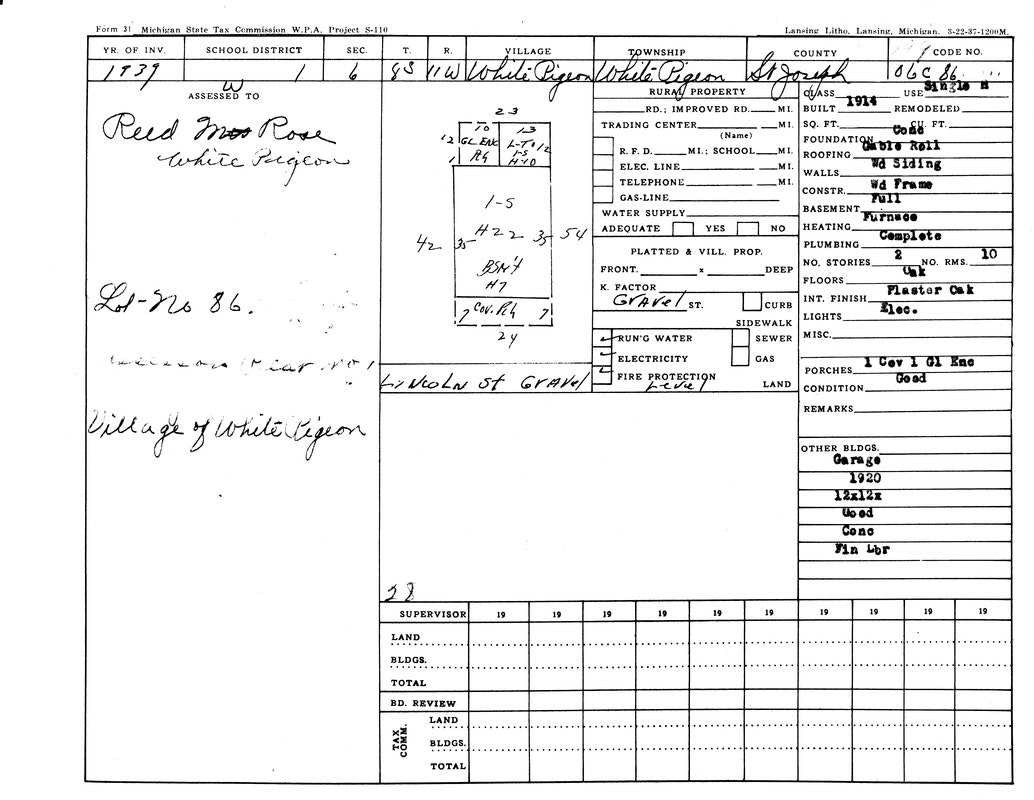 Form 31 Michigan State Tax Commission W.P.A. Project S-110
Lansing Litho. Lansing, Michigan. 3-22-37-1200M.
YR. OF INV. SCHOOL DISTRICT SEC. T. R. VILLAGE TOWNSHIP COUNTY CODE NO.
1939 1 6 8S 11W White Pigeon White Pigeon St Joseph 06C 86
W
ASSESSED TO
Reed Rose
White Pigeon
Lot-No 86.
Village of White Pigeon
23
10 13
12 GL ENC L-T 12
PG 1-S
1 H10
1-S
42 35 H22 35 54
BSM'T
H7
7 COV. PG 7
24
LINCOLN ST GRAVEL
28
RURAL PROPERTY
RD.; IMPROVED RD. MI.
TRADING CENTER MI.
(Name)
R. F. D. MI.; SCHOOL MI.
ELEC. LINE MI.
TELEPHONE MI.
GAS-LINE
WATER SUPPLY
ADEQUATE YES NO
PLATTED & VILL. PROP.
FRONT. x DEEP
K. FACTOR
GRAVEL ST. CURB
SIDEWALK
RUN'G WATER SEWER
ELECTRICITY GAS
FIRE PROTECTION
Level LAND
CLASS USE Single H
BUILT 1914 REMODELED
SQ. FT. CU. FT.
FOUNDATION Conc
ROOFING Gable Roll
WALLS Wd Siding
CONSTR. Wd Frame
BASEMENT Full
HEATING Furnace
PLUMBING Complete
NO. STORIES 2 NO. RMS. 10
FLOORS Oak
INT. FINISH Plaster Oak
LIGHTS Elec.
MISC.
PORCHES 1 Cov 1 Gl Enc
CONDITION Good
REMARKS
OTHER BLDGS.
Garage
1920
12x12x
Good
Conc
Fin Lbr
SUPERVISOR 19 19 19 19 19 19 19 19 19
LAND
BLDGS.
TOTAL
BD. REVIEW
TAX COMM.
LAND
BLDGS.
TOTAL